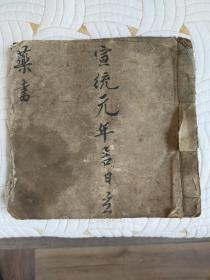 宣統元年吉日立
藥書